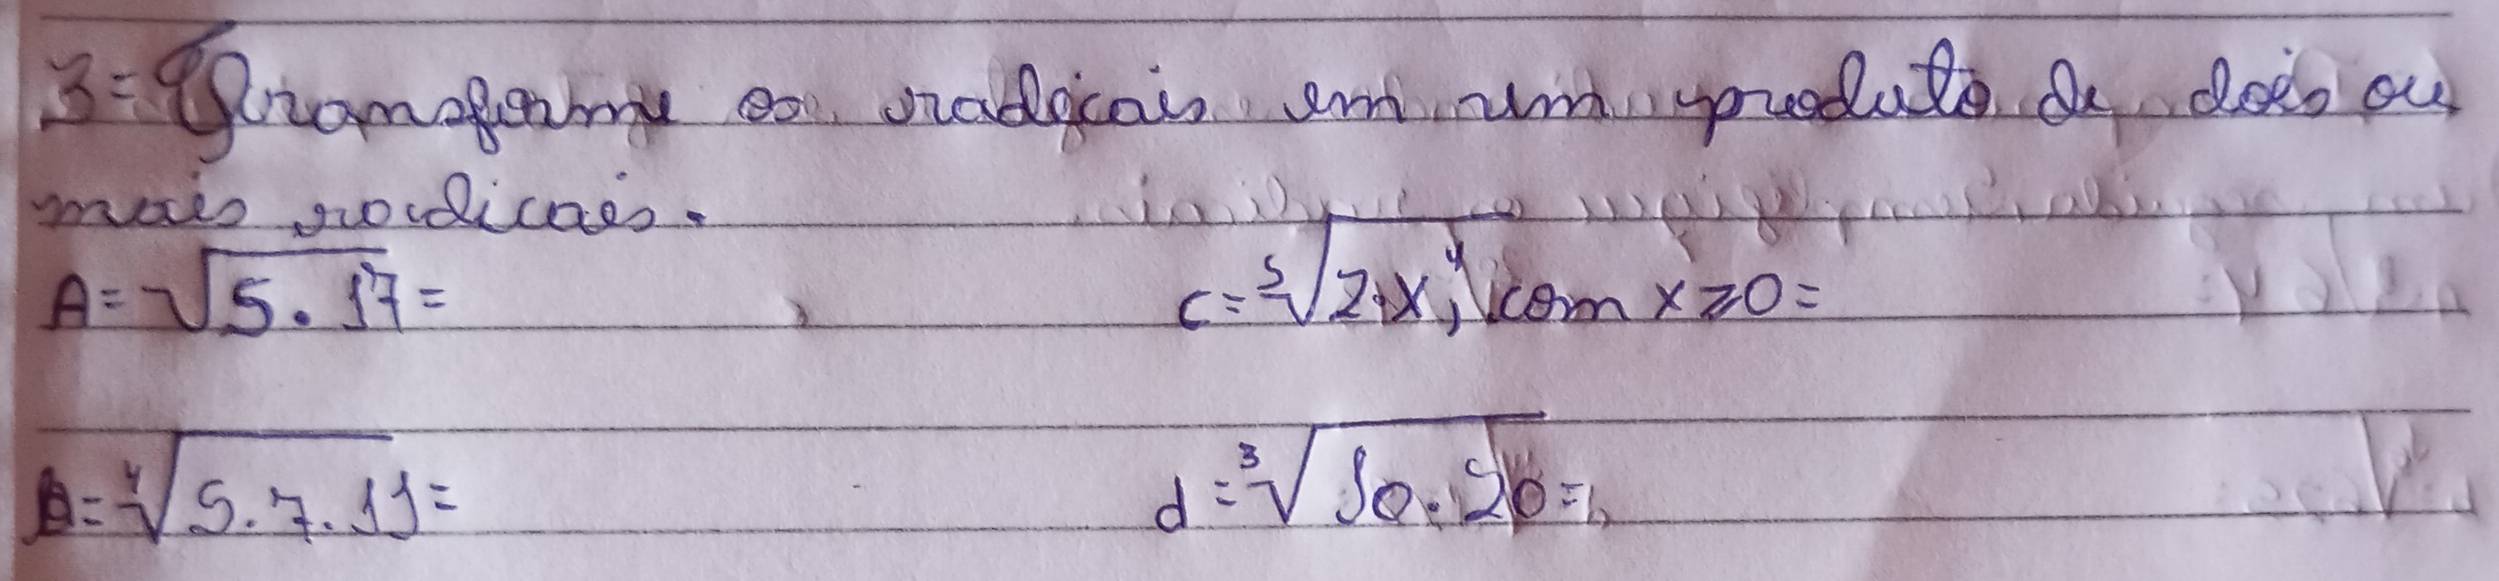 3= Transforme os radicais em um produto de dois ou
mais radicais.
A= √5.17=
c= ⁵√2.x⁴, com x≥0=
B= ⁴√5.7.11=
d= ³√10.20=